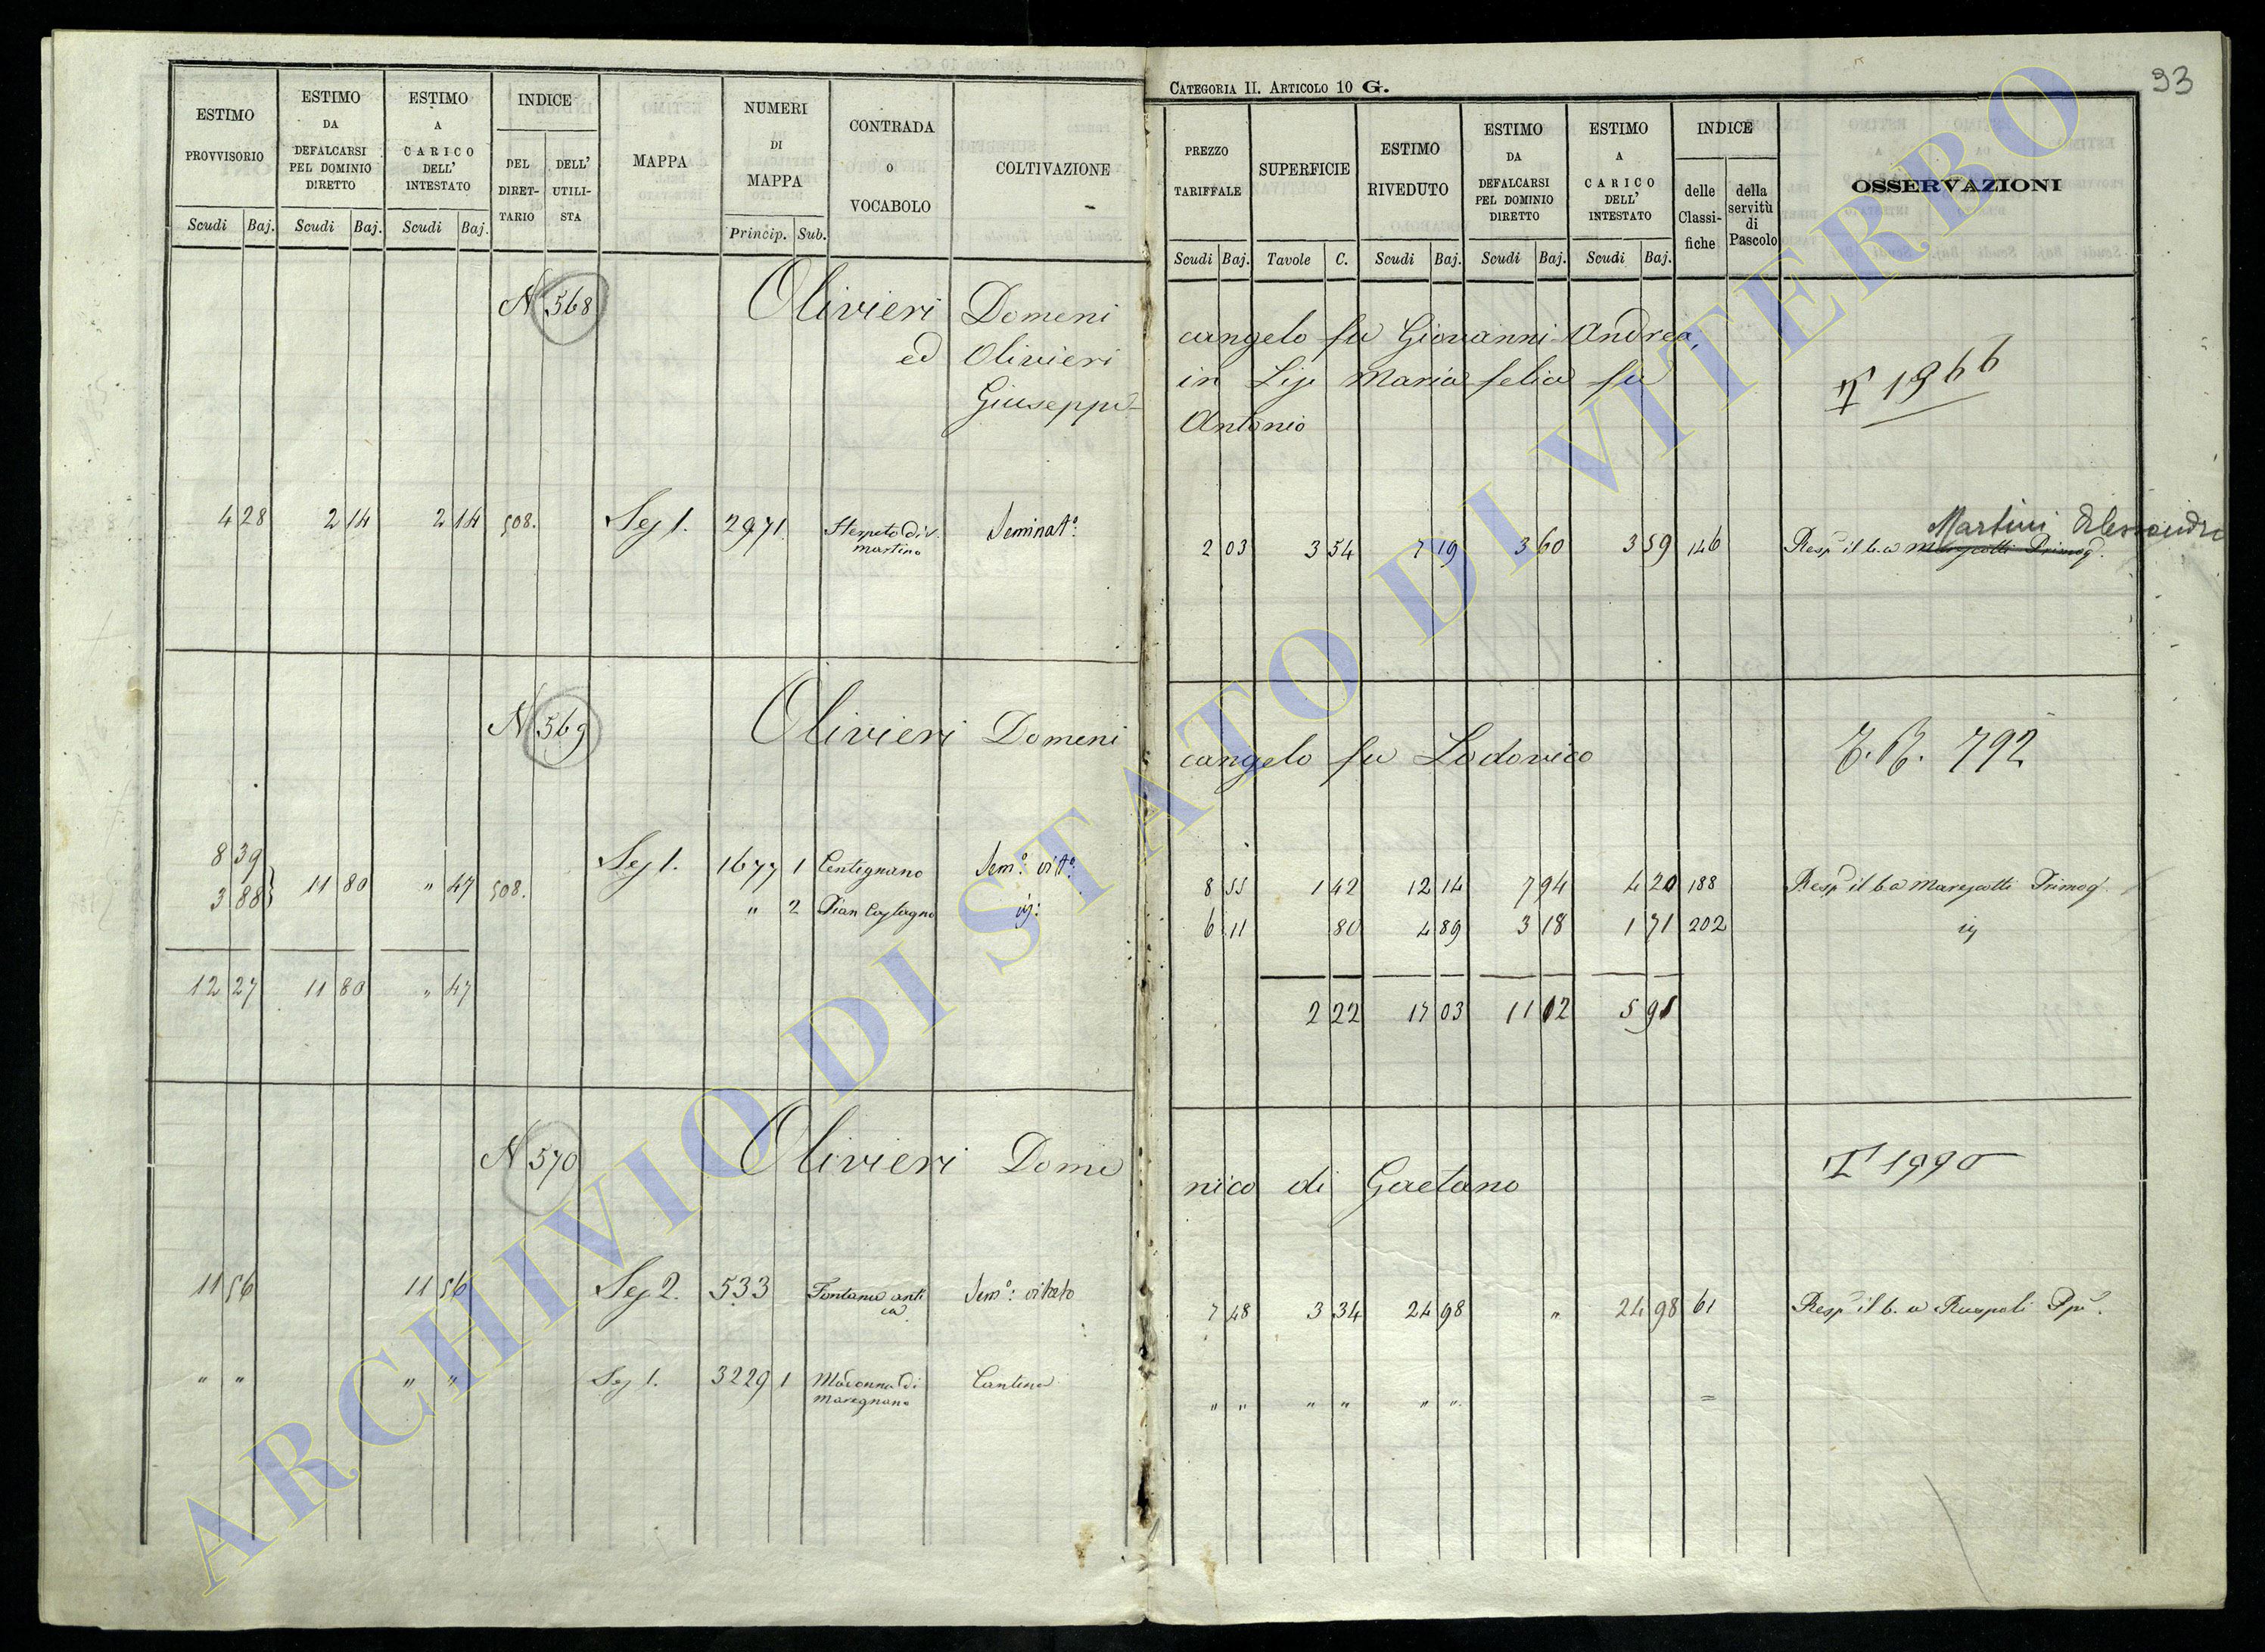 93
CATEGORIA II. ARTICOLO 10 G.
ESTIMO PROVVISORIO Scudi Baj.
ESTIMO DA DEFALCARSI PEL DOMINIO DIRETTO Scudi Baj.
ESTIMO A CARICO DELL' INTESTATO Scudi Baj.
INDICE DEL DIRET-TARIO DELL' UTILI-STA
MAPPA
NUMERI DI MAPPA Princip. Sub.
CONTRADA O VOCABOLO
COLTIVAZIONE
PREZZO TARIFFALE Scudi Baj.
SUPERFICIE Tavole C.
ESTIMO RIVEDUTO Scudi Baj.
ESTIMO DA DEFALCARSI PEL DOMINIO DIRETTO Scudi Baj.
ESTIMO A CARICO DELL' INTESTATO Scudi Baj.
INDICE delle Classi-fiche della servitù di Pascolo
OSSERVAZIONI
N 568 Olivieri Domeni cangelo fu Giovanni Andrea,
ed Olivieri in Maria felice fu
Giuseppe Antonio
1966
Martini Alessandro
4 28 2 14 2 14 508. Sez 1. 2971 Martino Seminat°: 2 03 3 54 7 19 3 60 3 59 146 Resp il b. a Marescotti Primog.
N 569 Olivieri Domeni cangelo fu Lodovico 792
8 39 Sez 1. 1677 1 Centignano Sem°: vit°: 8 55 1 42 12 14 7 94 4 20 188 Resp il b. a Marescotti Primog.
3 88 11 80 " 47 508. " 2 Pian Castagno 6 11 80 4 89 3 18 1 71 202
12 27 11 80 " 47 2 22 17 03 11 12 5 91
N 570 Olivieri Dome nico di Gaetano 1990
11 56 11 56 Sez 2. 533 Fontana anti ca Sem°: vitato 7 48 3 34 24 98 " 24 98 61 Resp il b. a Ruspoli
" " " " Sez 1. 3229 1 Madonna di Maregnano Cantina " " " " " " =
ARCHIVIO DI STATO DI VITERBO